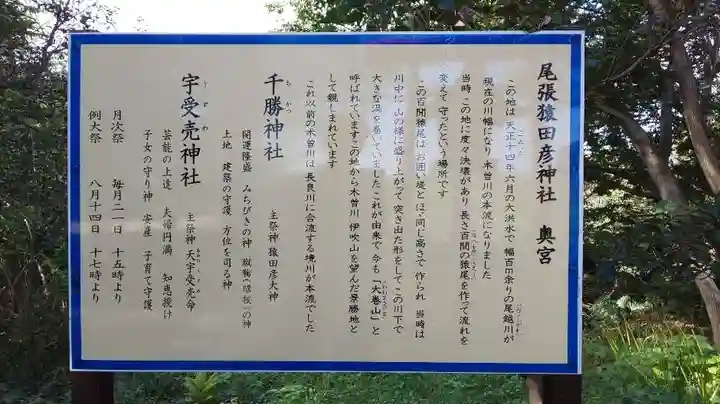 尾張猿田彦神社 奥宮
この地は 天正十四年六月の大洪水で 幅百m余りの尾越川が
現在の川幅になり 木曽川の本流になりました
当時 この地に度々決壊があり 長さ百間の猿尾を作って流れを
変えて 守ったという場所です
この百間猿尾は お囲い堤とほゞ同じ高さで 作られ 当時は
川中に 山の様に盛り上がって 突き出た形をして この川下で
大きな渦を巻いていました これが由来で 今も「大巻山」と
呼ばれています この地から木曽川 伊吹山を望んだ景勝地と
して親しまれています
これ以前の木曽川は 長良川に合流する境川が本流でした
千勝神社
ちかつ
主祭神 猿田彦大神
開運隆盛 みちびきの神 の神
土地 建築の守護 方位を司る神
宇受売神社
うずめ
主祭神 天宇受売命
芸能の上達 夫婦円満 知恵授け
子女の守り神 安産 子育て守護
月次祭 毎月二一日 十五時より
例大祭 八月十四日 十七時より